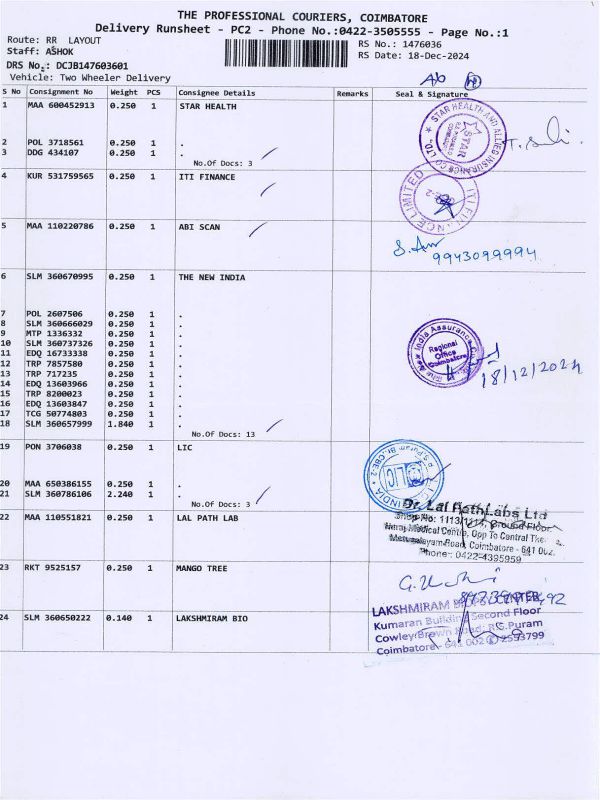 THE PROFESSIONAL COURIERS, COIMBATORE
Delivery Runsheet - PC2 - Phone No.:0422-3505555 - Page No.:1
Route: RR LAYOUT
Staff: ASHOK
RS No.: 1476036
DRS No.: DCJB147603601
RS Date: 18-Dec-2024
Vehicle: Two Wheeler Delivery
S No Consignment No Weight PCS Consignee Details Remarks Seal & Signature
1 MAA 600452913 0.250 1 STAR HEALTH
2 POL 3718561 0.250 1 .
3 DDG 434107 0.250 1 .
No.Of Docs: 3
STAR HEALTH AND ALLIED INSURANCE CO LTD.
STAR
4 KUR 531759565 0.250 1 ITI FINANCE
ITI FINANCE LIMITED
5 MAA 110220786 0.250 1 ABI SCAN
9943099994
6 SLM 360670995 0.250 1 THE NEW INDIA
7 POL 2607506 0.250 1 .
8 SLM 360666029 0.250 1 .
9 MTP 1336332 0.250 1 .
10 SLM 360737326 0.250 1 .
11 EDQ 16733338 0.250 1 .
12 TRP 7857580 0.250 1 .
13 TRP 717235 0.250 1 .
14 EDQ 13603966 0.250 1 .
15 TRP 8200023 0.250 1 .
16 EDQ 13603847 0.250 1 .
17 TCG 50774803 0.250 1 .
18 SLM 360657999 1.840 1 .
No.Of Docs: 13
India Assurance
Regional
Office
Coimbatore
18/12/2024
19 PON 3706038 0.250 1 LIC
20 MAA 650386155 0.250 1 .
21 SLM 360786106 2.240 1 .
No.Of Docs: 3
LIC
22 MAA 110551821 0.250 1 LAL PATH LAB
Dr. Lal PathLabs Ltd
Shop No: 1113/1114, Ground Floor,
Medical Centre, Opp To Central
Road, Coimbatore - 641 002.
Phone: 0422-4395959
23 RKT 9525157 0.250 1 MANGO TREE
24 SLM 360650222 0.140 1 LAKSHMIRAM BIO
LAKSHMIRAM CENTER
Kumaran Building Second Floor
Cowley Brown Road, R.S.Puram
Coimbatore - 641 002 2553799